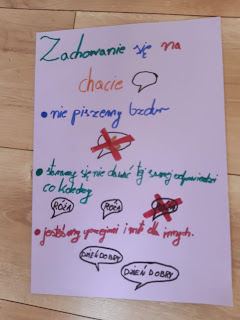 Zachowanie się na
chacie
• nie piszemy bzdur
• staramy się nie dawać tej samej odpowiedzi
co koledzy
RÓŻA RÓŻA
• jesteśmy uprzejmi i mili dla innych.
DZIEŃ DOBRY
DZIEŃ DOBRY